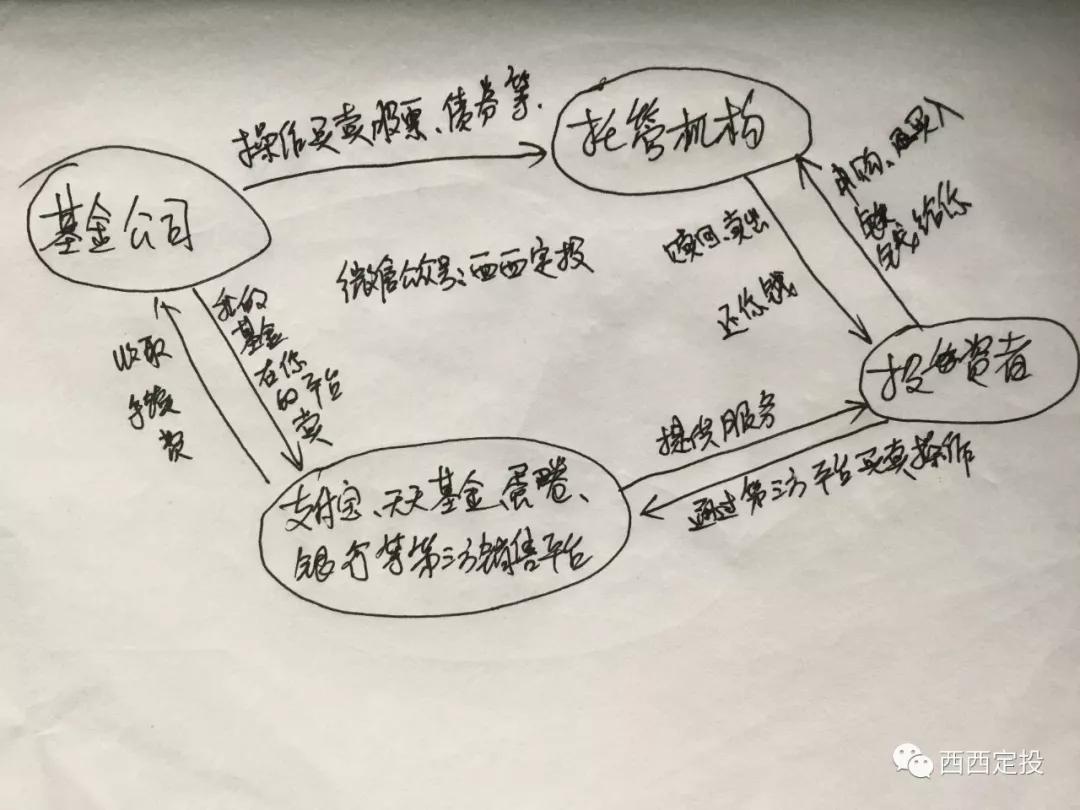 操作买卖股票、债券等.
托管机构
基金公司
申购、买入
钱给你
赎回、卖出
还你钱
微信公众号:西西定投
我的
基金
在你
的平台
卖
收取
手续
费
投资者
提供服务
通过第三方平台买卖操作
支付宝、天天基金、蛋卷、
银行等第三方销售平台
西西定投